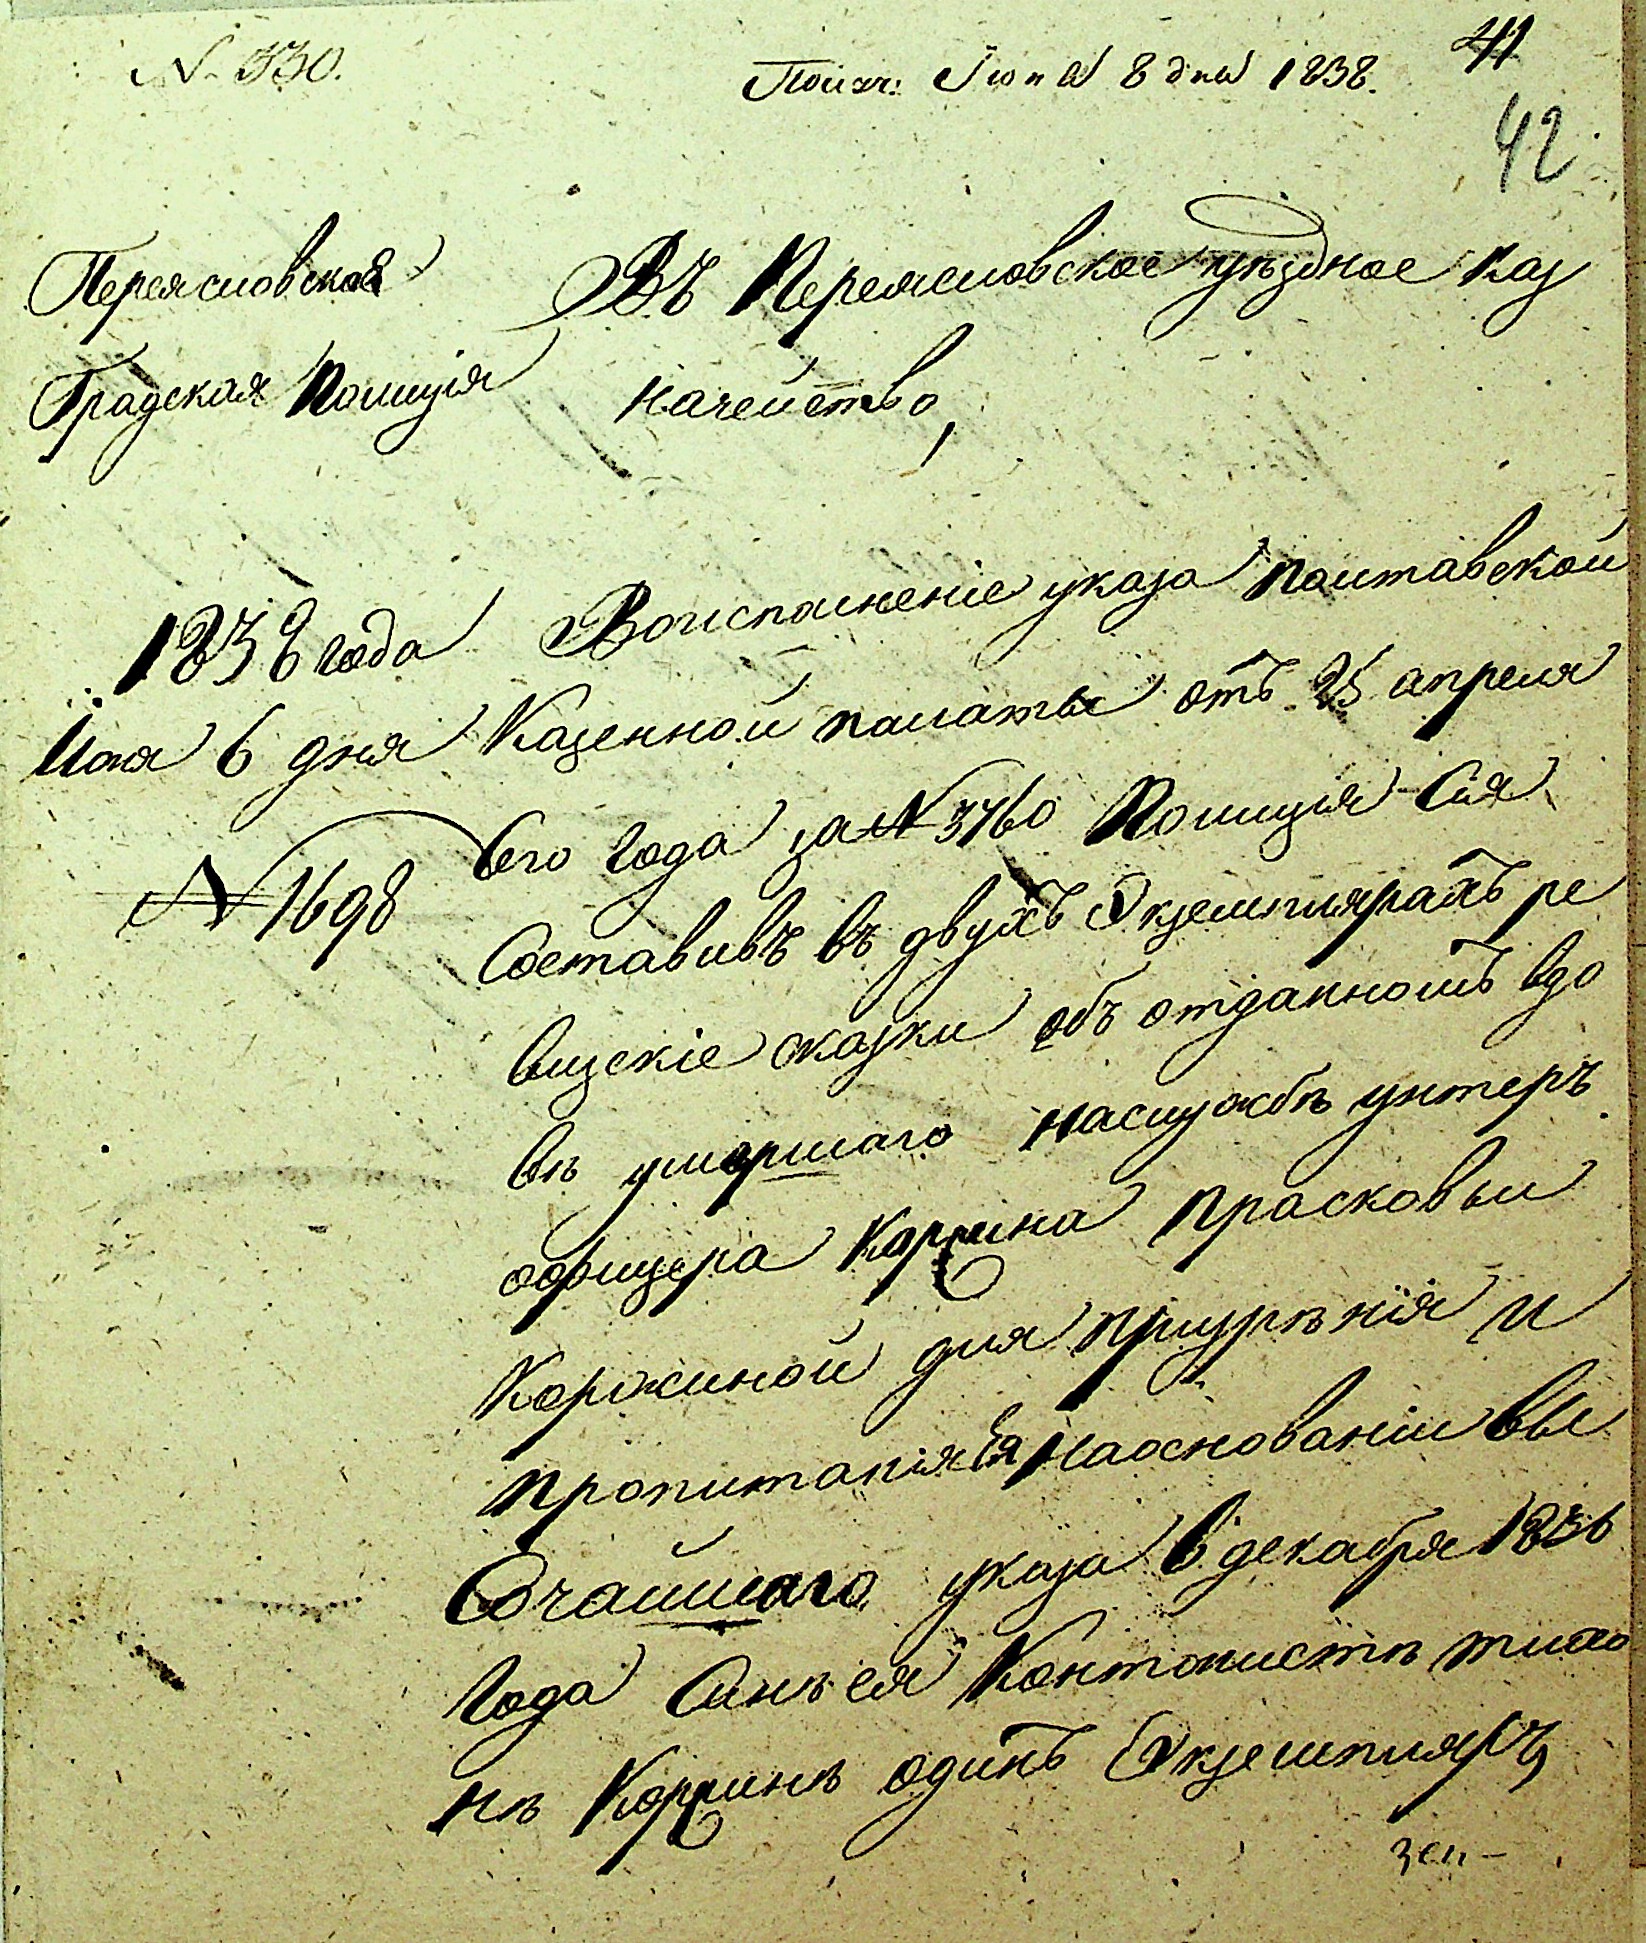 N. 330.
Получ: Іюня 8 дня 1838.
41
42
Переясловская
Градская Полиція
Въ Переясловское уѣздное каз
начейство,
1838 года
Іюня 6 дня
N 1698
Воисполненіе указа Полтавской
Казенной палаты отъ 25 апреля
сего года за N 3760 Полиція Сія
Составивъ въ двухъ Экземплярахъ ре
визскіе сказки объ отданномъ вдо
вѣ умершаго наслужбѣ унтеръ
офицера Коржина Прасковьи
Коржиной для призрѣнія и
пропитанія ея наоснованіи вы
сочайшаго указа 6 декабря 1836
года Синѣ ея Кантонистѣ тимо
Коржинѣ одинъ Экземпляръ